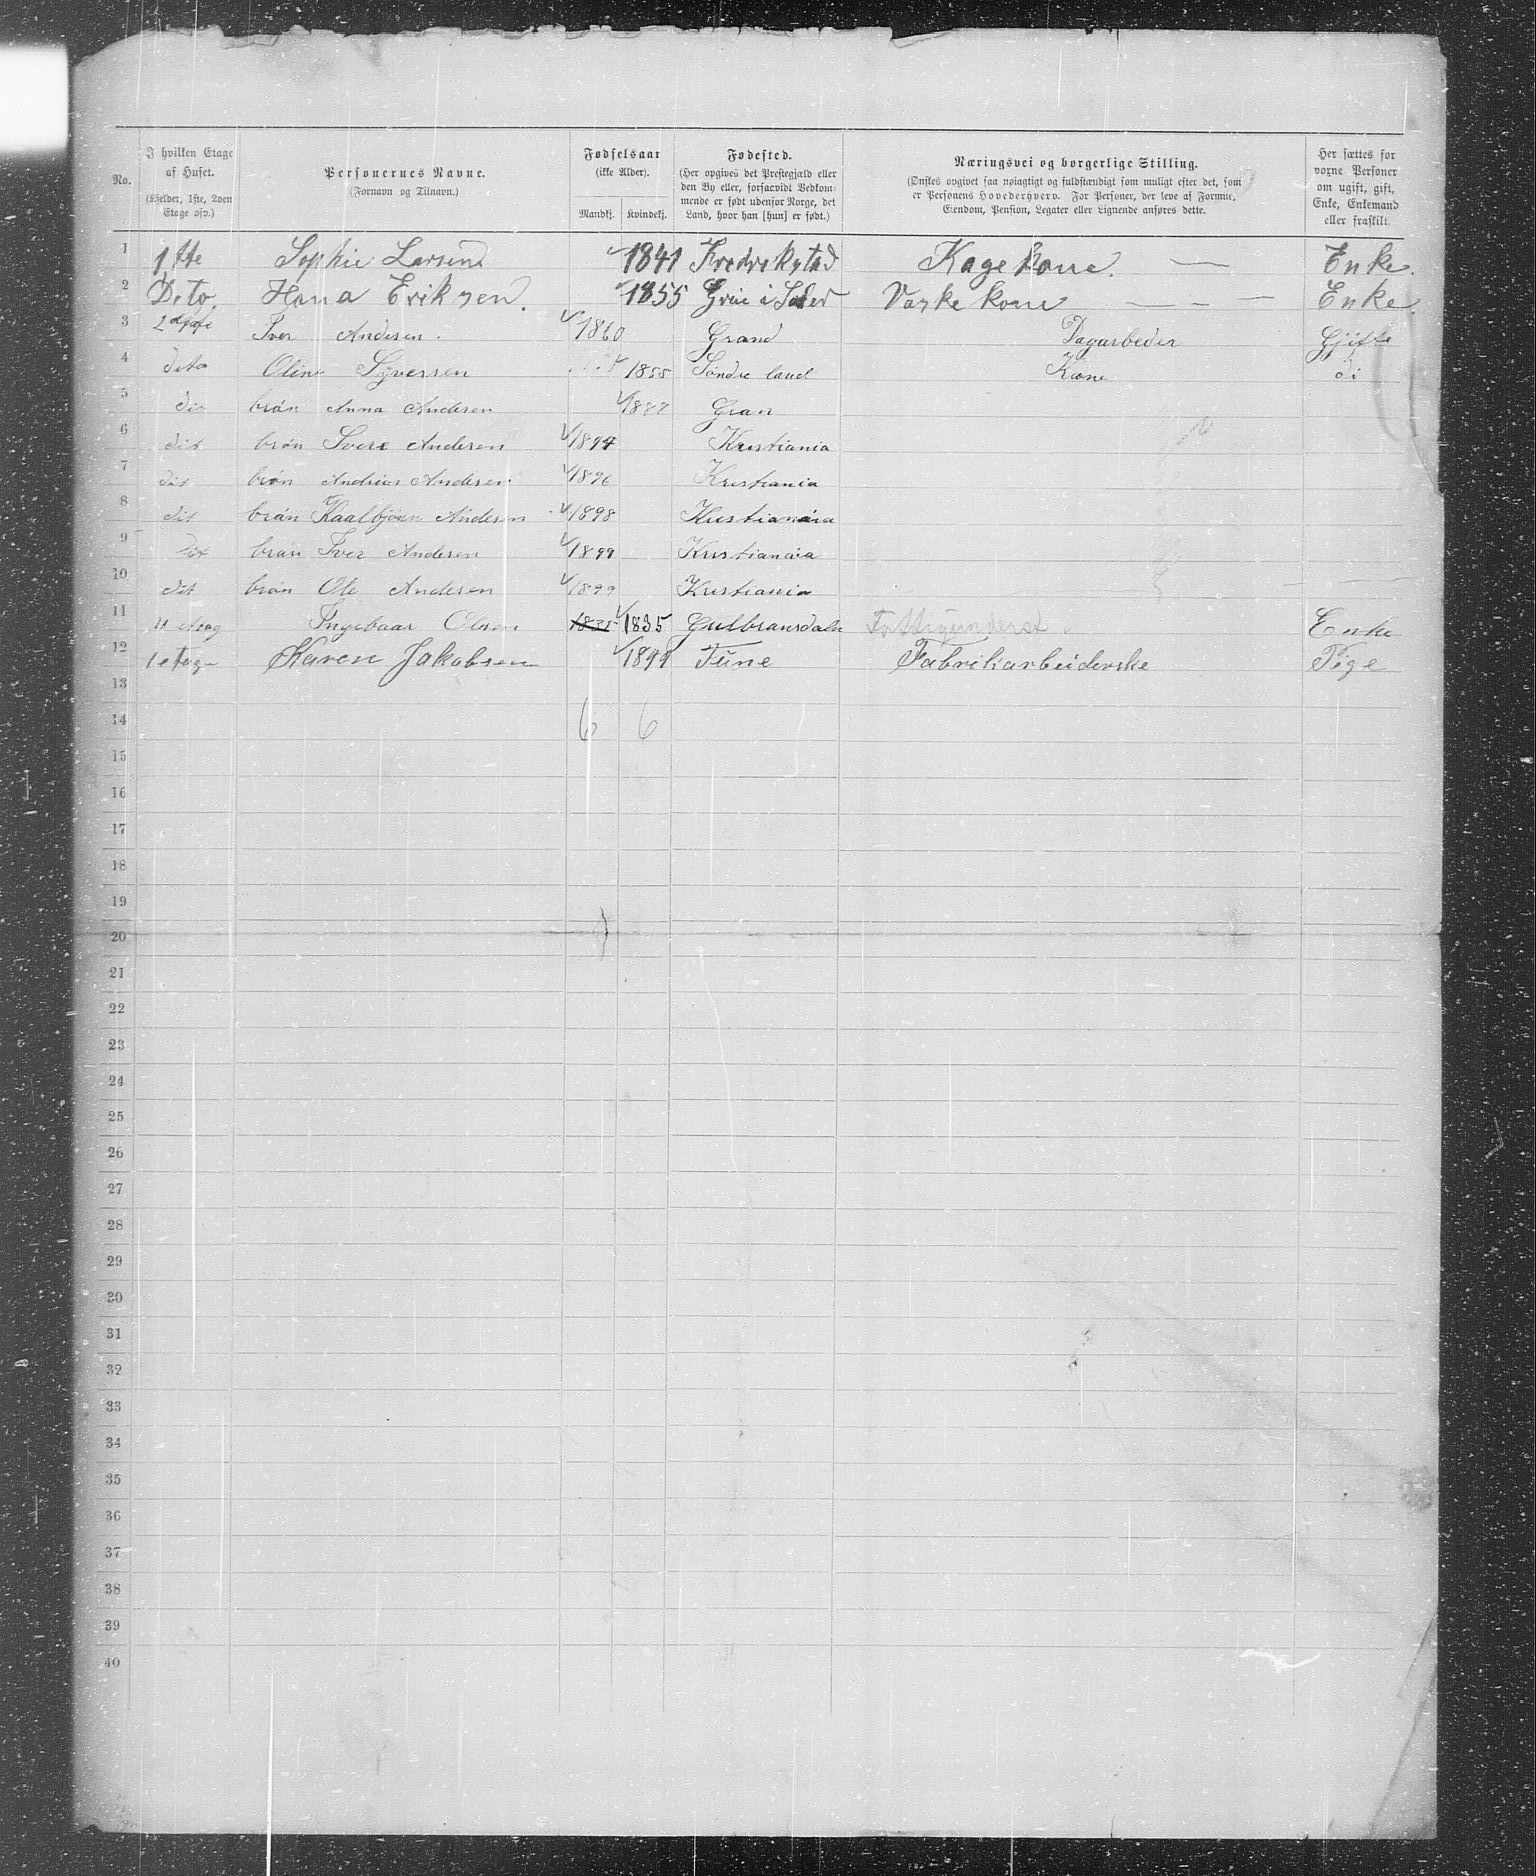 No.
I hvilken Etage af Huset. (Kjelder, 1ste, 2den Etage osv.)
Personernes Navne. (Fornavn og Tilnavn.)
Fødselsaar (ikke Alder). Mandkj. Kvindekj.
Fødested. (Her opgives det Prestegjæld eller den By eller, forsaavidt Vedkommende er født udenfor Norge, det Land, hvor han [hun] er født.)
Næringsvei og borgerlige Stilling. (Ønskes opgivet saa nøiagtigt og fuldstændigt som muligt efter det, som er Personens Hovederhverv. For Personer, der leve af Formue, Eiendom, Pension, Legater eller Lignende anføres dette.)
Her sættes for vorne Personer om ugift, gift, Enke, Enkemand eller fraskilt.
1 1ste Sophie Larsen 1841 Fredrekstad Kagekone. — Enke.
2 Dito. Hana Eriksen. 1855 Grin i Vaske kone — — — Enke.
3 Iver Andersen. 1860 Grand Dagarbeder Gjifte
4 dito Oline Syversen 1855 Søndre land Kone di
5 dit brán Anna Andersen Gran
6 dit brón Svere Andersen 1894 Kristiania
7 dit brón Andreas Andersen 1896 Kristiania
8 dit brán Kaalbjørn Andersen 1898 Kristianaia
9 dit brán Iver Andersen 1899 Kristianaia
10 dit brón Ole Andersen 1899 Kristiania
11 etag Ingebaar Olsen 1835 1835 Gulbransdale Fattigunderst. Enke
12 1 etage Karen Jakobsen Tune Fabrikarbeiderske Pige
13
14 6 6
15
16
17
18
19
20
21
22
23
24
25
26
27
28
29
30
31
32
33
34
35
36
37
38
39
40